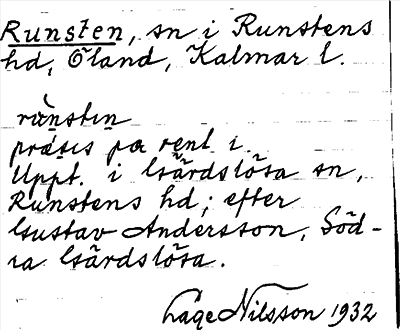 Runsten, sn i Runstens
hd, Öland, Kalmar l.
rànstın
práẹsıs pa rẹnl i.
Uppt. i Gärdslösa sn,
Runstens hd; efter
Gustav Andersson, Söd-
ra Gärdslösa.
Låge Nilsson 1932